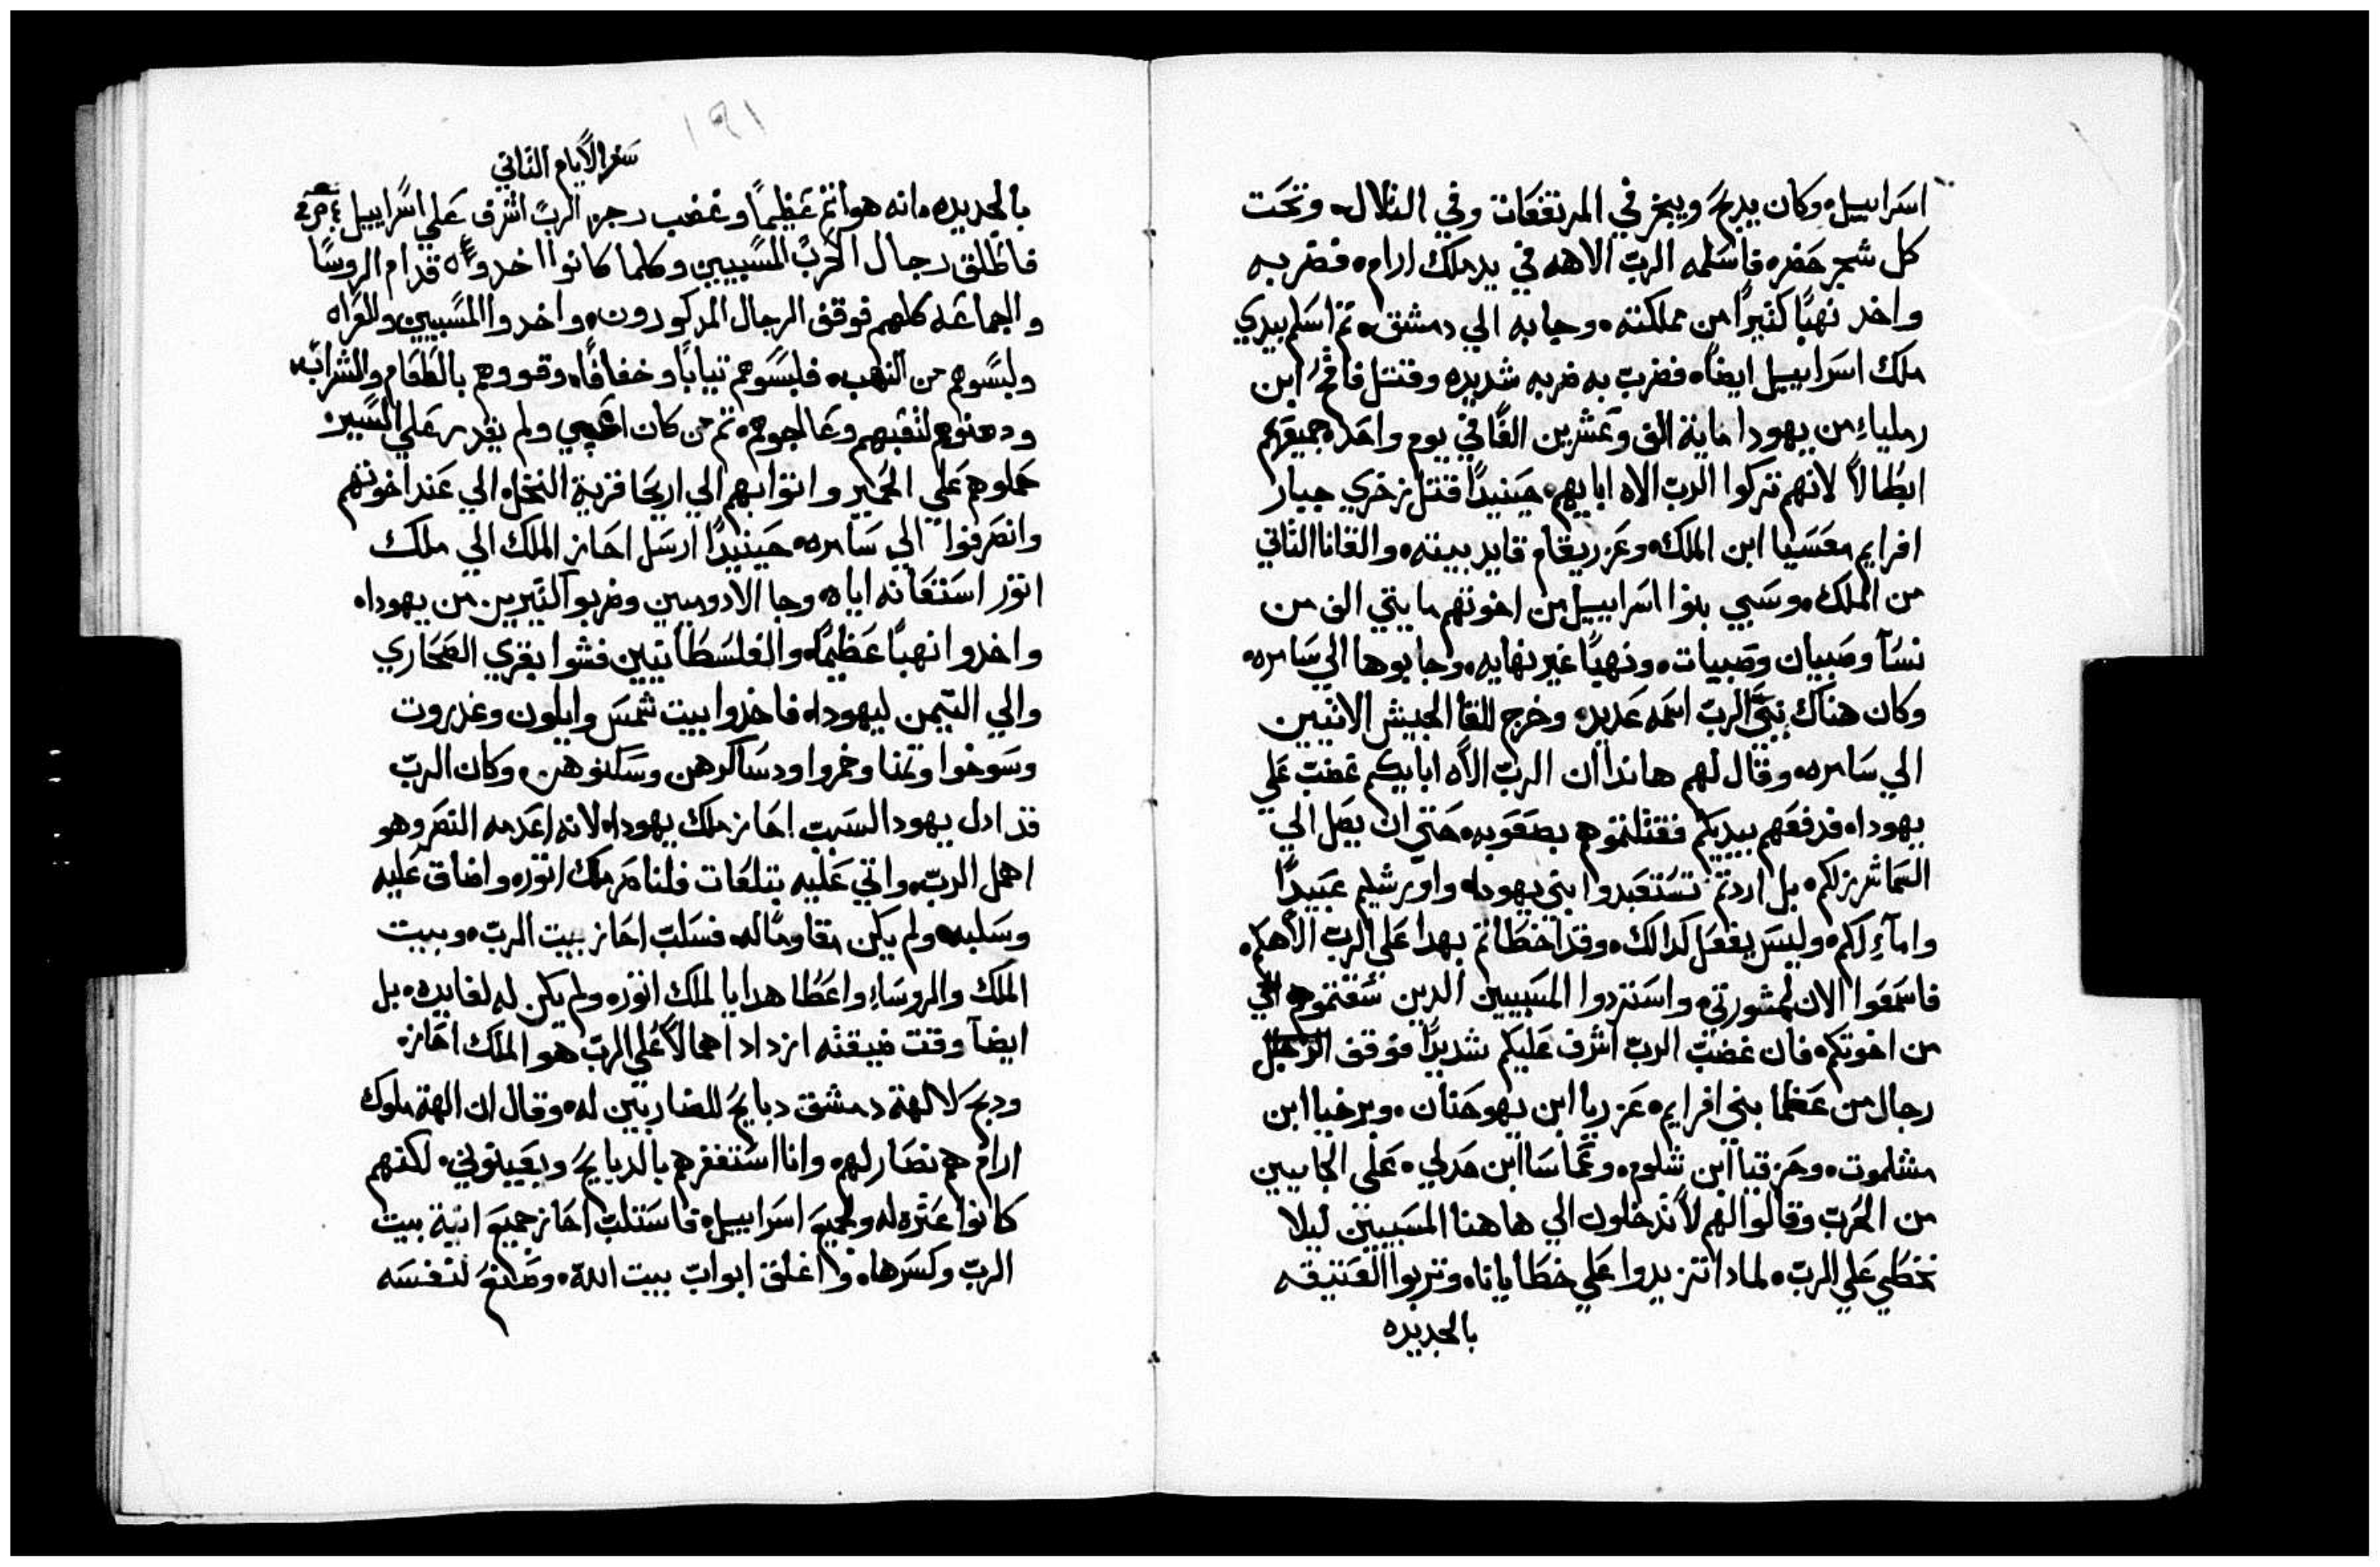 اسراييل ه وكان يدبح ويبخر في المرتفعات وفي التلال ه وتحت
كل شجر خضره فاسلمه الرب الاهه في يد ملك ارام ه فضربه
واخد نهبًا كتيرًا من مملكته ه وجابه الي دمشق ه تم اسلم بيدي
ملك اسراييل ايضًا ه فضرب به ضربه شديده وقتل فاقح ابن
رملياء من يهودا ماية الف وعشرين الفًا في يوم واحد ه جميعهم
ابطالاً لانهم تركوا الرب الاه ابايهم ه حينيدًا قتل زخري جبار
افرايم معسيا ابن الملك ه وعزريقام قايد بيته ه والقانا التاني
من الملك ه وسبي بنوا اسراييل من اخوتهم مايتي الف من
نسآ وصبيان وصبيات ه ونهبًا غير نهايه ه وجابوها الي سامره ه
وكان هناك نبي الرب اسمه عديد ه وخرج للقا الجيش الاتيين
الي سامره ه وقال لهم هاندا ان الرب الاه ابايكم غضب علي
يهودا ه فدفعهم بيديكم فقتلتموهم بصعوبه ه حتي ان يصل الي
السما شرزكم ه بل اردتم تستعبدوا بني يهودا ه واورشليم عبيدًا
وامآء لكم ه وليس يفعل كدالك ه وقد اخطاتم بهدا علي الرب الاهكم ه
فاسمعوا الان لمشورتي ه واستردوا المسبيين الدين سقتموهم
من اخوتكم ه فان غضب الرب اشرف عليكم شديدًا فوقف
رجال من عظما بني افرايم ه عزريا ابن يهوحنان ه وبرخيا ابن
مشلموت ه وحزقيا ابن شلوم ه وعماسا ابن حدلي ه علي الجايين
من الحرب وقالوا لهم لا تدخلون الي هاهنا المسبيين ليلا
نخطي علي الرب ه لمادا تزيدوا علي خطايانا ه وتربوا العتيقه
بالجديده
١٩١
سفر الايام التاني
بالجديده ه انه هو اتم عظيمًا وغضب رجز الرب اشرف علي اسراييل
فاطلق رجال الحرب المسبيين وكلما كانوا اخدوه ه قدام الروسًا
والجماعه كلهم فوقف الرجال المدكورون ه واخدوا المسبيين والعراه
ولبسوهم من النهب ه فلبسوهم تيابًا وخفافًا ه وقووهم بالطعام والشراب ه
ودهنوهم لتعبهم وعالجوهم ه تم من كان ولم يقدر علي السير ه
حملوهم علي الحمير واتوا بهم الي اريحا قرية النخل ه الي عند اخوتهم
وانصرفوا الي سامره ه حينيدًا ارسل احاز الملك الي ملك
اتور استعانه اياه ه وجا الادوميين وضربوا كتيرين من يهودا ه
واخدوا نهبًا عظيمًا ه والفلسطانيين فشوا بقري الصحاري
والي التيمن ليهودا ه فاخدوا بيت شمس وايلون وغديروت
وسوخوا وتمنا وخمروا ودساكرهن وسكنوهن ه وكان الرب
قد ادل يهودا لسبب احاز ملك يهودا ه لانه اعدمه النصر وهو
اهمل الرب ه واتي عليه بتلغات فلناصر ملك اتور ه واضاق عليه
وسلبه ه ولم يكن مقاومًا له ه فسلب احاز بيت الرب ه وبيت
الملك والروساء واعطا هدايا لملك اتور ه ولم يكن له لفايده ه بل
ايضآ وقت ضيقته ازداد اهمالاً علي الرب هو الملك احاز ه
ودبح لالهة دمشق دبايح للضاربين له ه وقال ان الهة ملوك
ارام هم نصار لهم ه وانا استغفرهم بالدبايح ويعينوني ه لكنهم
كانوا عتره له ولجميع اسراييل ه فاستلب احاز جميع انية بيت
الرب وكسرها ه واغلق ابواب بيت الله ه وصنع لنفسه